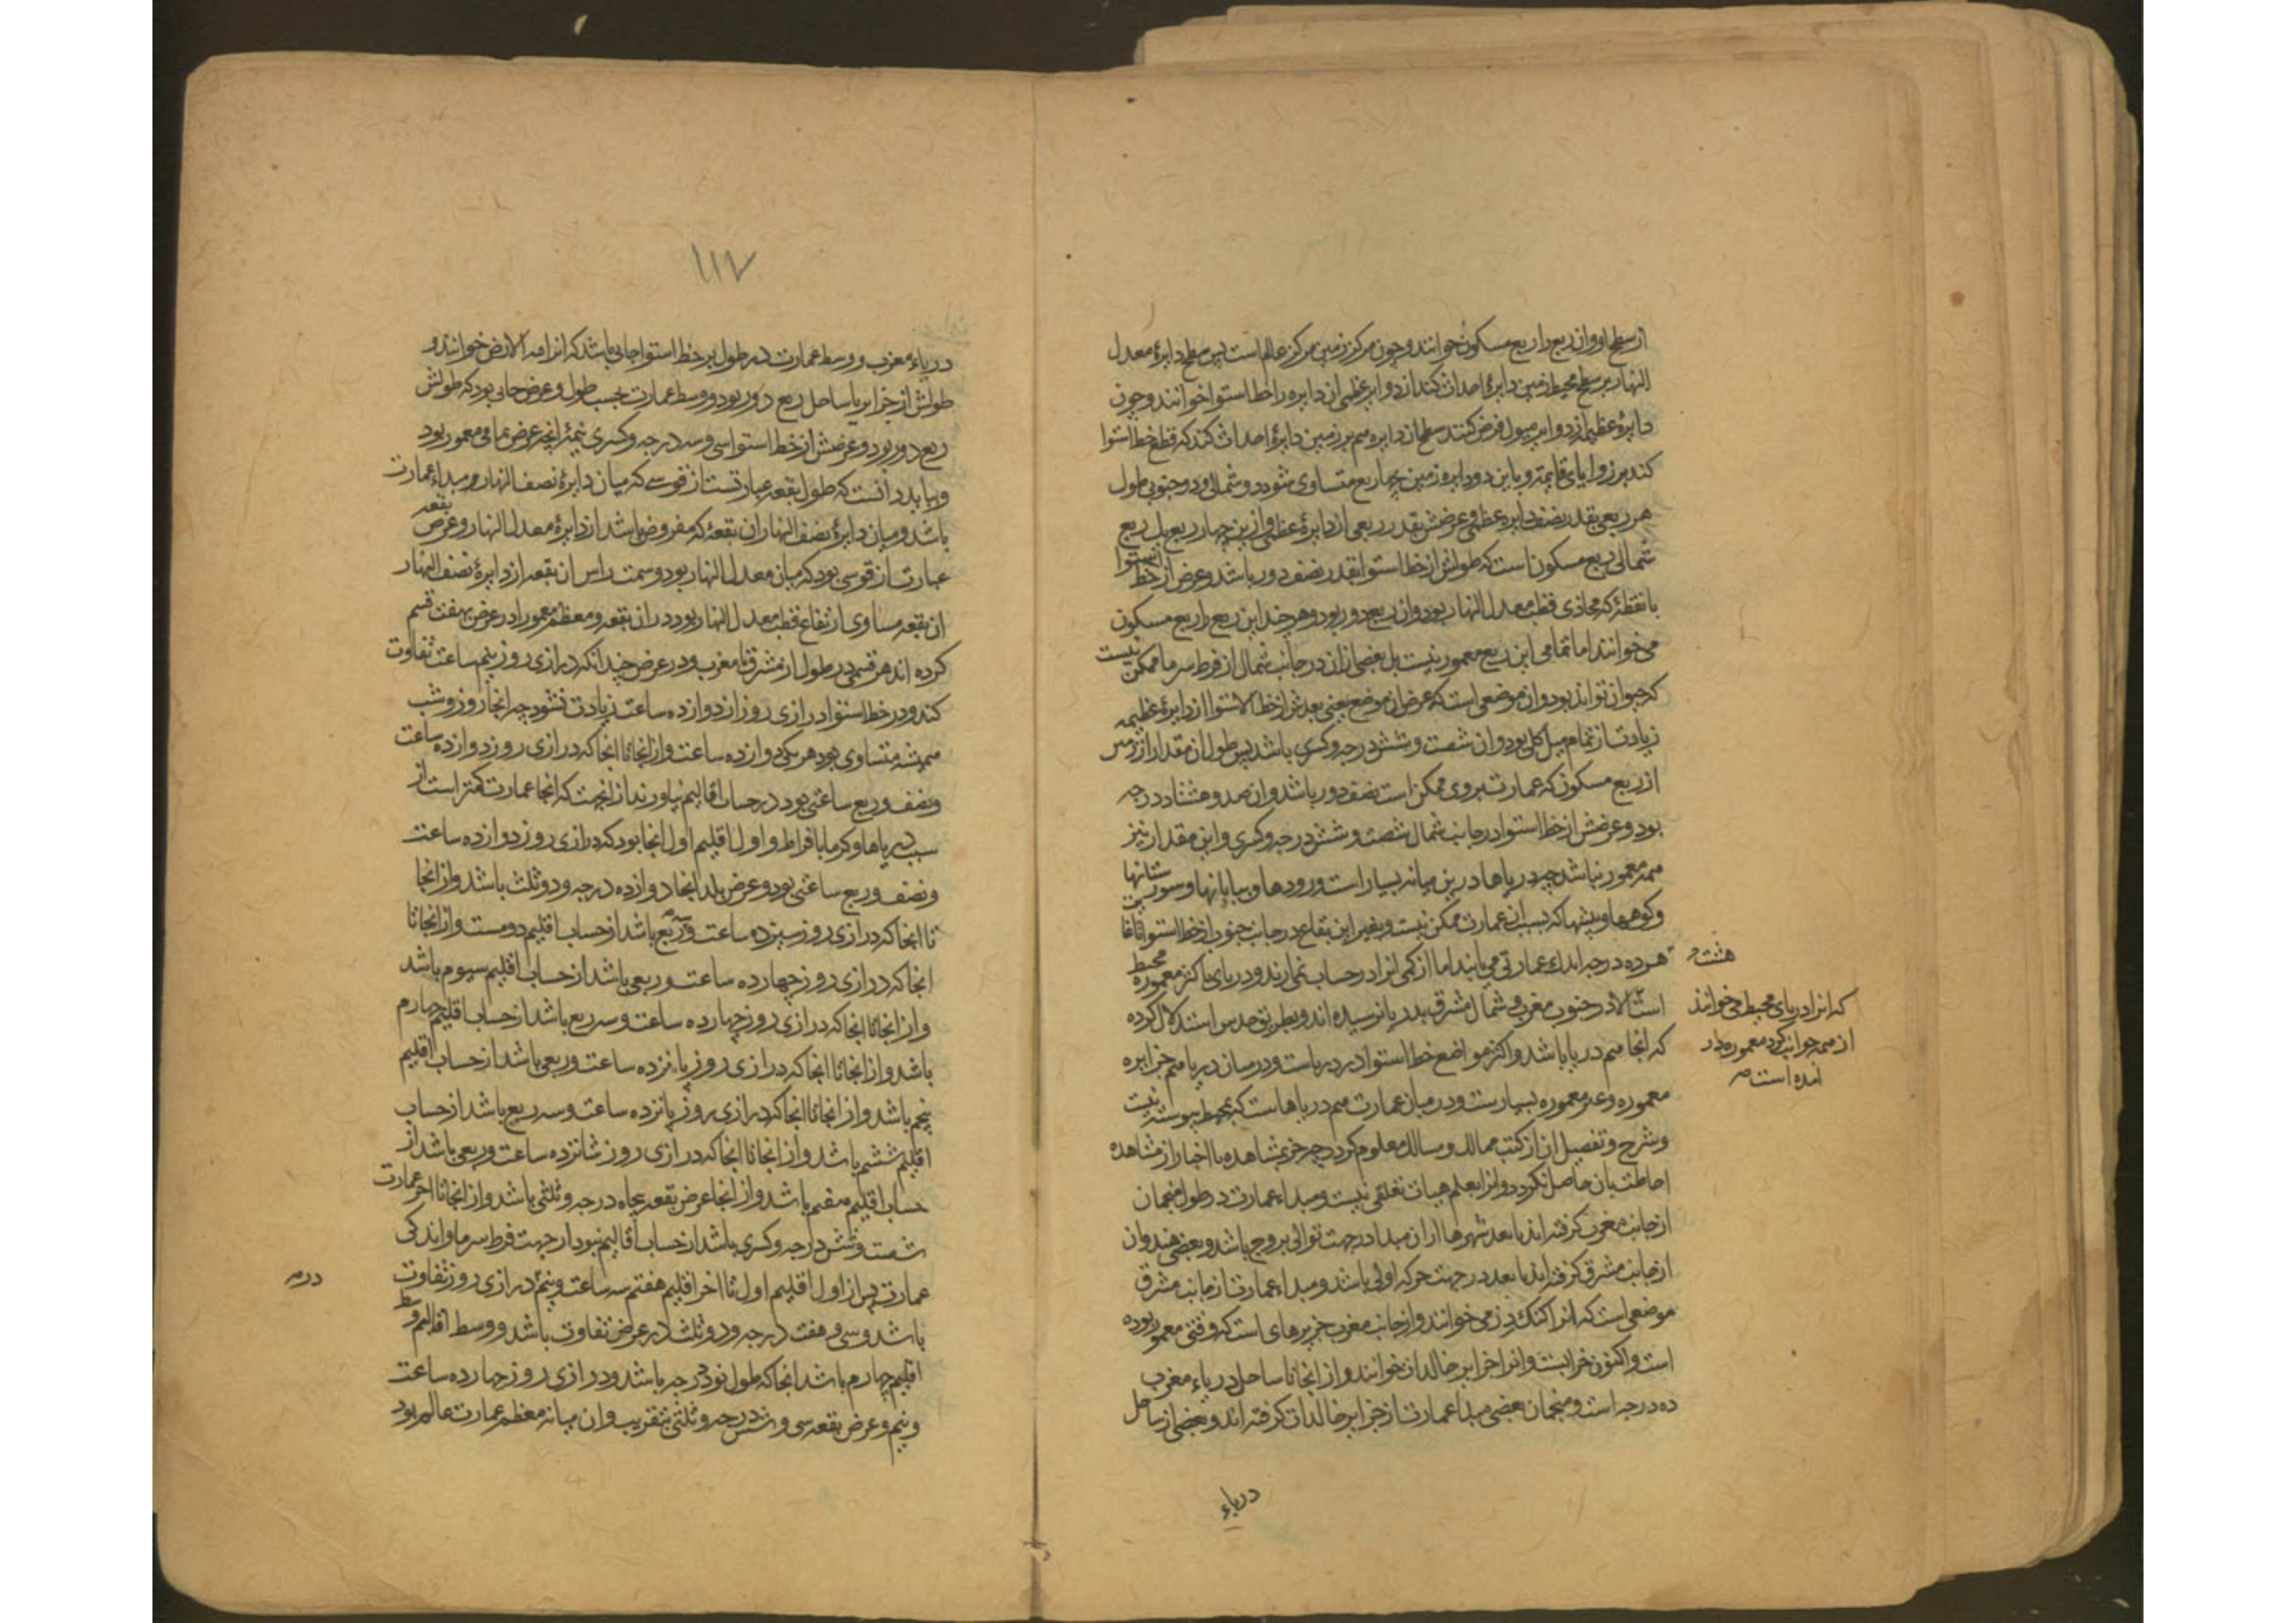 از سطح او و ان ربع را ربع مسکون خوانند و چون مرکز زمین مرکز عالم است پس سطح دایرهٔ معدل
النهار بر سطح محیط زمین دایرهٔ احداث کند از دوایر عظمی ان دایره را خط استوا خوانند و چون
دایرهٔ عظیمه از دوایر میول فرض کنند سطح ان دایره هم بر زمین دایرهٔ احداث کند که قطع خط استوا
کند بر زوایای قایمه و باین دو دایره زمین چهار ربع متساوی شود دو شمالی و دو جنوبی طول
هر ربعی بقدر نصف دایره عظمی و عرضش بقدر ربعی از دایرهٔ عظمی و ازین چهار ربع یک ربع
شمالی ربع مسکون است که طولش از خط استوا بقدر نصف دور باشد و عرض از خط استوا
با نقطهٔ که محاذی قطب معدل النهار بود و ان ربع دور بود و هر چند این ربع را ربع مسکون
می خوانند اما تمامی این ربع معمور نیست بل بعضی ازان در جانب شمال از فرط سرما ممکن نیست
که حیوان تواند بود و ان موضعی است که عرض ان موضع یعنی بعدش از خط الاستوا از دایرهٔ عظیمه
زیادت از تمام میل کلی بود و ان شصت و شش درجه و کسری باشد پس طول ان مقدار از زمین
از ربع مسکون که عمارت بروی ممکن است نصف دور باشد و ان صد و هشتاد درجه
بود و عرضش از خط استوا در جانب شمال شصت و شش درجه و کسری و این مقدار نیز
همه معمور نباشد چه دریاها درین میانه بسیار است و رودها و بیابانها و
و کوهها و بیشها که بسبب ان عمارت ممکن نیست و بغیر این بقاع در جانب جنوب از خط استوا تا
هژده درجه اندک عمارتی می یابند اما از کمی انرا در حساب نمی ارند و دریای محیط باکثر معموره
است الا در جنوب مغرب و شمال مشرق بدریا نرسیده اند و بطریق حدس استدلال کرده
که انجا هم دریا باشد و اکثر مواضع خط استوا در دریاست و در میان دریا هم جزایره
معموره و غیر معموره بسیارست و در میان عمارت هم دریاها است که بمحیط پیوسته نیست
و شرح و تفصیل ان از کتب ممالک و مسالک معلوم کردد چه جز بمشاهده یا اخبار از مشاهده
احاطت بان حاصل نکردد و انرا بعلم هیات تعلقی نیست و مبداء عمارت در طول منجمان
از جانب مغرب کرفته اند تا بعد شهرها از ان مبدا در جهت توالی بروج باشد و بعضی هندوان
از جانب مشرق کرفته اند تا بعد در جهت حرکه اولی باشد و مبداء عمارت از جانب مشرق
موضعی است که انرا کنک دز می خوانند و از جانب مغرب جزیرهای است که وقتی معمور بوده
است و اکنون خرابست و انرا جزایر خالدات خوانند و از انجا تا ساحل دریاء مغرب
ده درجه است و منجمان بعضی مبدا عمارت از جزایر خالدات کرفته اند و بعضی از ساحل
هشت
که انرا دریای محیط می خوانند
از همه جوانب کرد معموره در
امده است
دریاء
١١٧
دریاء مغرب و وسط عمارت در طول بر خط استوا جایی باشد که انرا قبه الارض خوانند و
طولش از جزایر یا ساحل ربع دور بود و وسط عمارت بحسب طول و عرض جایی بود که طولش
ربع دور بود و عرضش از خط استوا سی و سه درجه و کسری نیمهٔ انچه عرض تمامی معمور بود
و بباید دانست که طول بقعه عبارتست از قوسی که میان دایرهٔ نصف النهار مبداء عمارت
باشد و میان دایرهٔ نصف النهار ان بقعهٔ که مفروض باشد از دایرهٔ معدل النهار و عرض بقعه
عبارت از قوسی بود که میان معدل النهار بود و سمت راس ان بقعه از دایرهٔ نصف النهار
ان بقعه مساوی ارتفاع قطب معدل النهار بود در ان بقعه و معظم معمور را در عرض بهفت قسم
کرده اند هر قسمی در طول از مشرق تا مغرب و در عرض چندانکه درازی روز بنیم ساعت تفاوت
کند و در خط استوا درازی روز از دوازده ساعت زیادت نشود چه انجا روز و شب
همیشه متساوی بود هر یکی دوازده ساعت و از انجا تا انجا که درازی روز دوازده ساعت
و نصف و ربع ساعتی بود در حساب اقالیم نیاورند از انجهت که انجا عمارت کمتر است از
سبب دریاها و کرما بافراط و اول اقلیم اول انجا بود که درازی روز دوازده ساعت
و نصف و ربع ساعتی بود و عرض بلد انجا دوازده درجه و دو ثلث باشد و از انجا
تا انجا که درازی روز سیزده ساعت و ربع باشد از حساب اقلیم دومست و از انجا تا
انجا که درازی روز چهارده ساعت و ربعی باشد از حساب اقلیم سیوم باشد
و از انجا تا انجا که درازی روز چهارده ساعت و سه ربع باشد از حساب اقلیم چهارم
باشد و از انجا تا انجا که درازی روز پانزده ساعت و ربعی باشد از حساب اقلیم
پنجم باشد و از انجا تا انجا که درازی روز پانزده ساعت و سه ربع باشد از حساب
اقلیم ششم باشد و از انجا تا انجا که درازی روز شانزده ساعت و ربعی باشد از
حساب اقلیم هفتم باشد و از انجا عرض بقعه پنجاه درجه و ثلثی باشد و از انجا تا اخر عمارت
شصت و شش درجه و کسری باشد از حساب اقالیم نبود از جهت فرط سرما و اندکی
عمارت پس از اول اقلیم اول تا اخر اقلیم هفتم سه ساعت و نیم درازی روز تفاوت
باشد و سی و هفت درجه و دو ثلث در عرض تفاوت باشد و وسط اقالیم وسط
اقلیم چهارم باشد انجا که طول نود درجه باشد و درازی روز چهارده ساعت
و نیم و عرض بقعه سی و شش درجه و ثلثی بتقریب و ان میانه معظم عمارت عالم بود